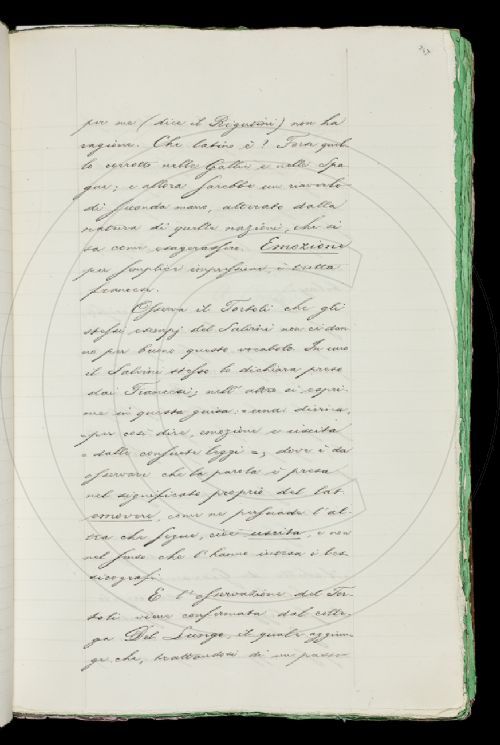 per me (dice il Rigutini) non ha
ragione. Che latino è? Forse quel-
lo corrotto nelle Gallie e nelle Spa-
gne; e allora sarebbe un riaverlo
di seconda mano, alterato dalla
natura di quelle nazioni, che si
sa come esagerassero. Emozione
per semplice impressione è tutta
francese.
Osserva il Tortoli che gli
stessi esempj del Salvini non ci dan-
no per buono questo vocabolo. In uno
il Salvini stesso lo dichiara preso
dai Francesi; nell' altro si espri-
me in questa guisa: «una divina,
»per così dire, emozione e uscita
» dalle consuete leggi »; dove è da
osservare che la parola è presa
nel significato proprio del lat.
emovere, come ne persuade l'al-
tra che segue, cioè uscita, e non
nel senso che l'hanno intesa i les-
sicografi.
E l'osservazione del Tor-
toli viene confermata dal colle-
ga Del Lungo, il quale aggiun-
ge che, trattandosi di un passo